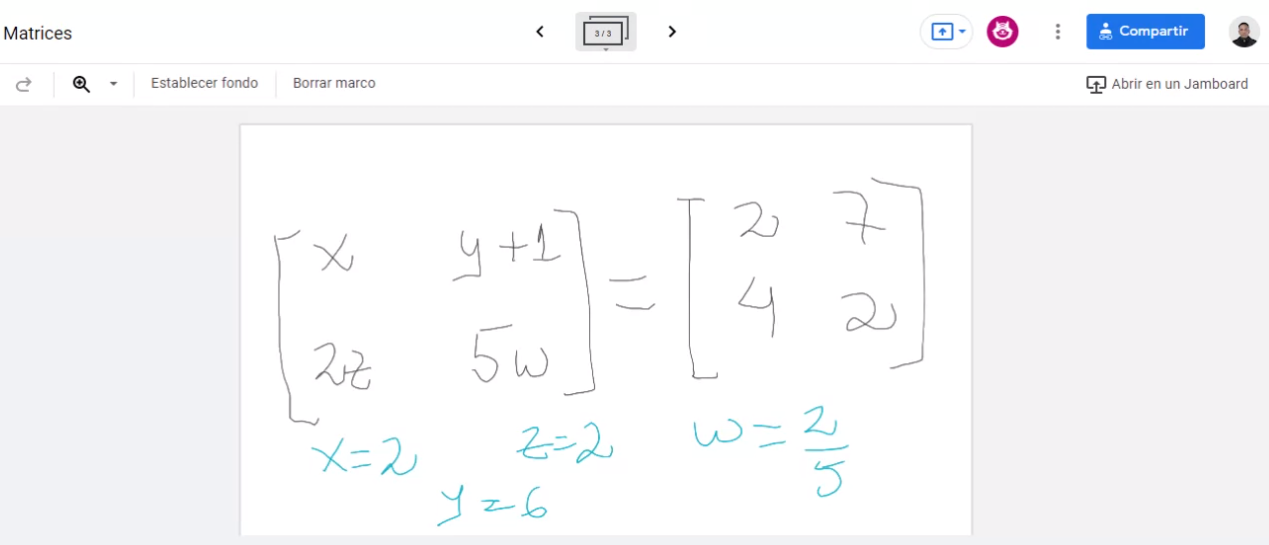 Matrices
3 / 3
Compartir
Establecer fondo
Borrar marco
Abrir en un Jamboard
x y+1 = 2 7
2z 5w 4 2
x=2 z=2 w=2/5
y=6